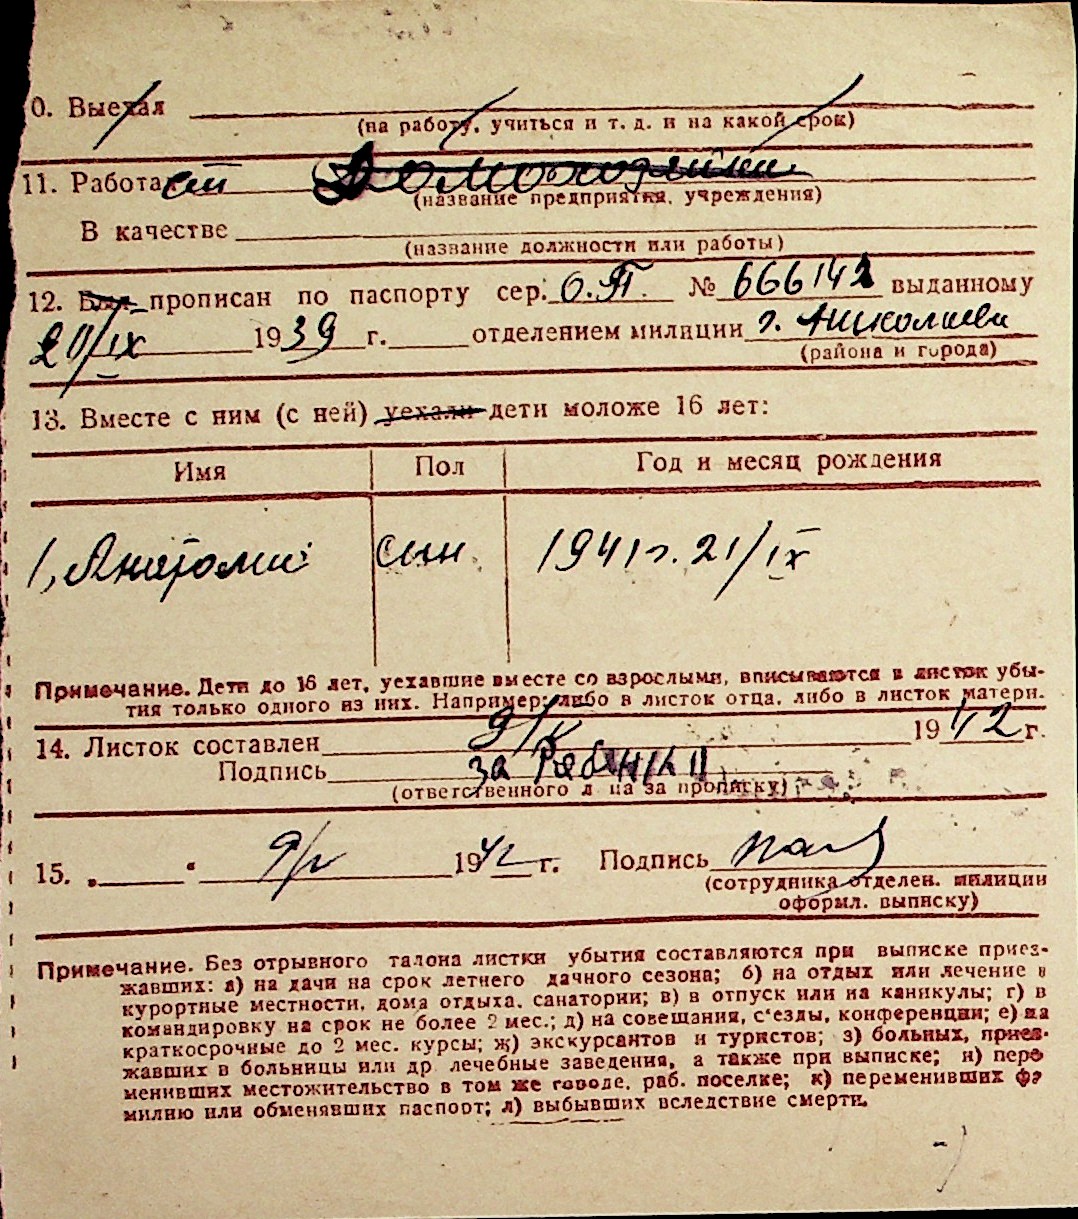 0. Выехал
(на работу, учиться и т. д. и на какой срок)
11. Работает Домохозяйки
(название предприятия, учреждения)
В качестве
(название должности или работы)
12. Был прописан по паспорту сер. О.П. № 666142 выданному
21/IX 1939 г. отделением милиции г. Николаева
(района и города)
13. Вместе с ним (с ней) уехали дети моложе 16 лет:
Имя Пол Год и месяц рождения
1, Анатолий сын 1941 г. 21/IX
Примечание. Дети до 16 лет, уехавшие вместе со взрослыми, вписываются в листок убы-
тия только одного из них. Например: либо в листок отца, либо в листок матери.
14. Листок составлен 9/V 1942 г.
Подпись за
(ответственного лица за прописку)
15. „ “ 9/V 1942 г. Подпись
(сотрудника отделен. милиции
оформл. выписку)
Примечание. Без отрывного талона листки убытия составляются при выписке приез-
жавших: а) на дачи на срок летнего дачного сезона; б) на отдых или лечение в
курортные местности, дома отдыха, санатории; в) в отпуск или на каникулы; г) в
командировку на срок не более 2 мес.; д) на совещания, с'езды, конференции; е) на
краткосрочные до 2 мес. курсы; ж) экскурсантов и туристов; з) больных, приез-
жавших в больницы или др лечебные заведения, а также при выписке; и) пере
менивших местожительство в том же городе, раб. поселке; к) переменивших фа
милию или обменявших паспорт; л) выбывших вследствие смерти.